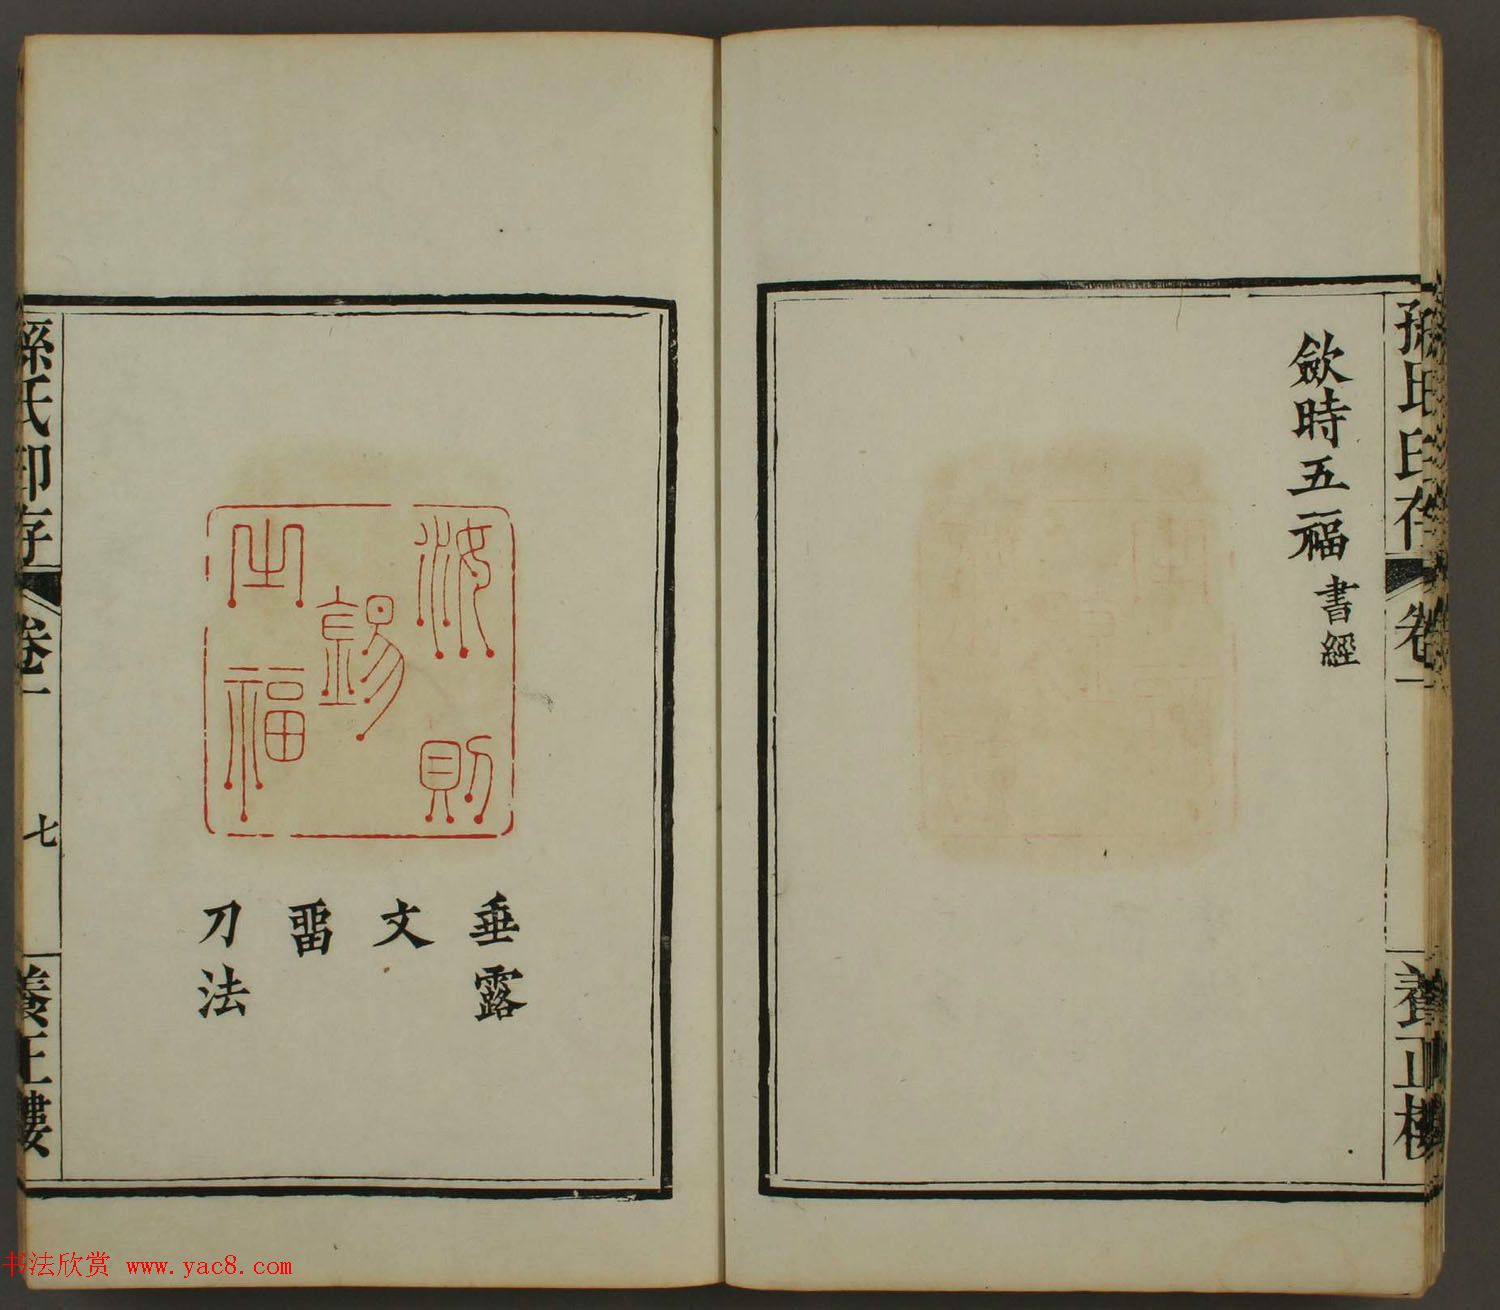 孫氏印存
卷一
養正樓
歛時五福 書經
汝則
錫
之福
垂露
文
畱
刀法
孫氏印存
卷一
七
養正樓
书法欣赏 www.yac8.com